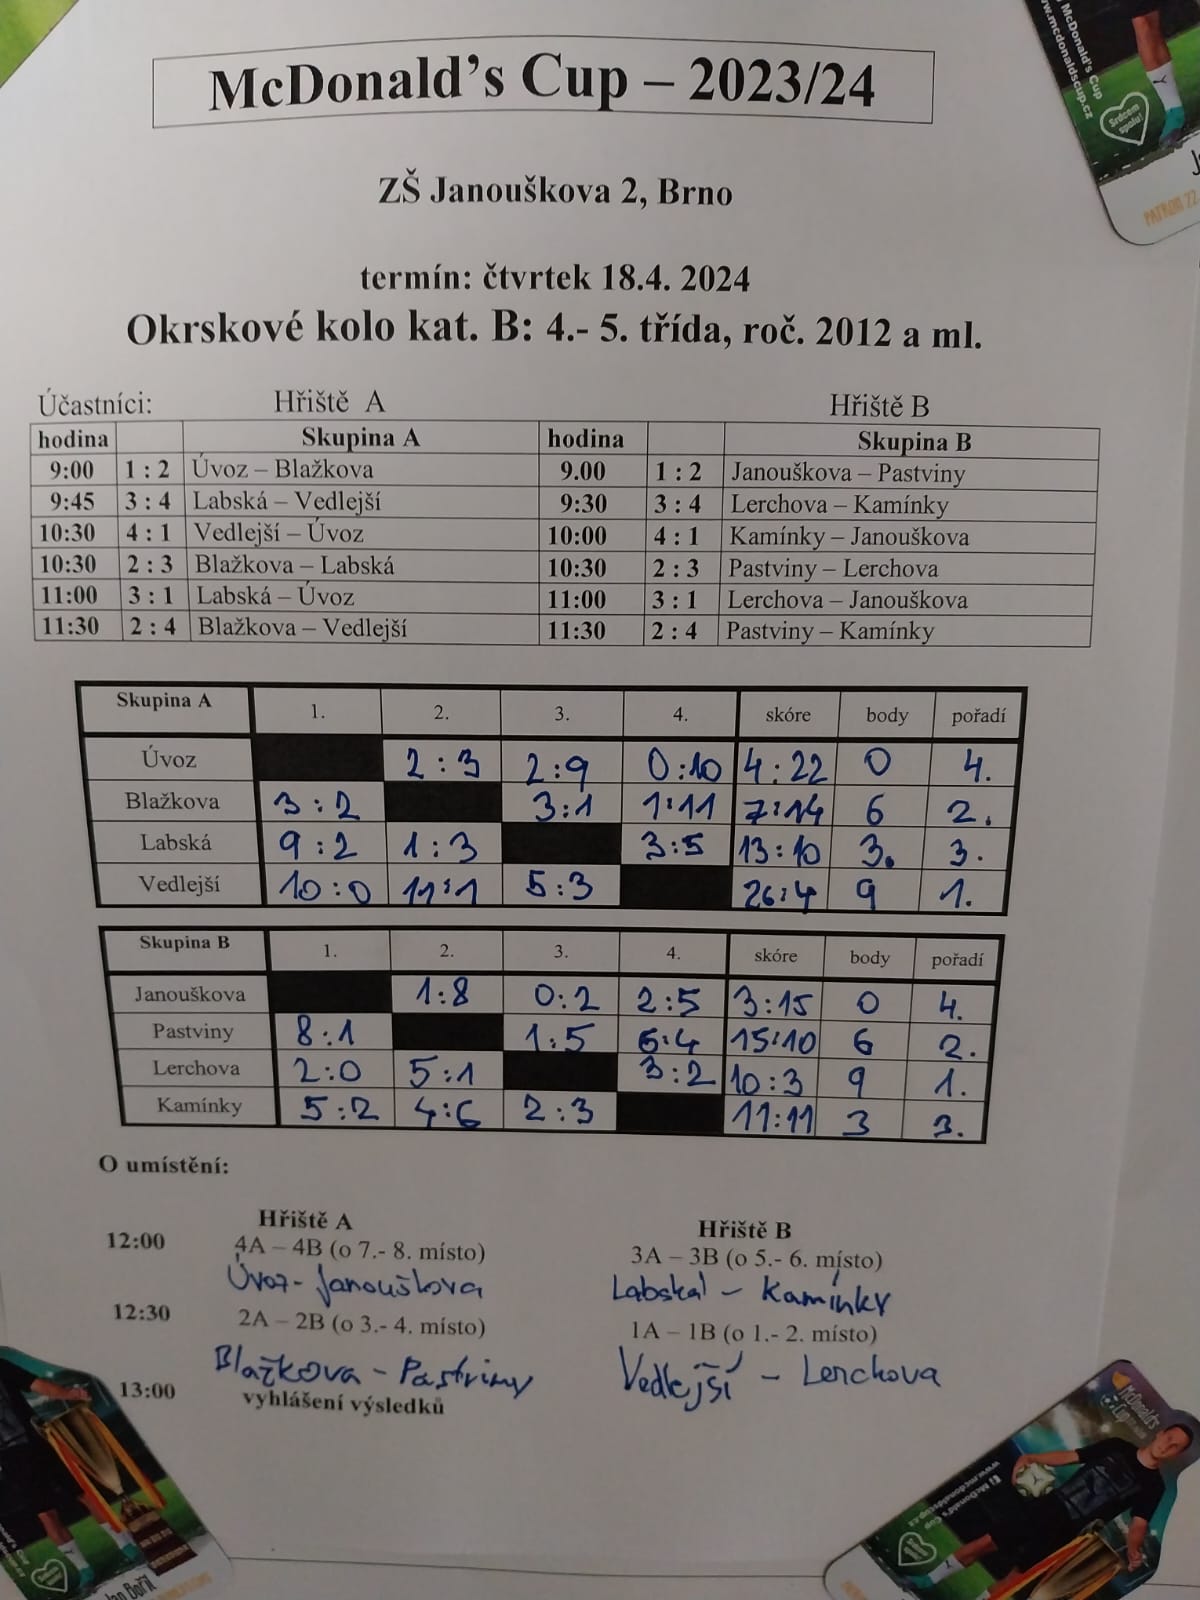 McDonald's Cup – 2023/24
ZŠ Janouškova 2, Brno
termín: čtvrtek 18.4. 2024
Okrskové kolo kat. B: 4.- 5. třída, roč. 2012 a ml.
Účastníci: Hřiště A Hřiště B
hodina Skupina A hodina Skupina B
9:00 1 : 2 Úvoz – Blažkova 9.00 1 : 2 Janouškova – Pastviny
9:45 3 : 4 Labská – Vedlejší 9:30 3 : 4 Lerchova – Kamínky
10:30 4 : 1 Vedlejší – Úvoz 10:00 4 : 1 Kamínky – Janouškova
10:30 2 : 3 Blažkova – Labská 10:30 2 : 3 Pastviny – Lerchova
11:00 3 : 1 Labská – Úvoz 11:00 3 : 1 Lerchova – Janouškova
11:30 2 : 4 Blažkova – Vedlejší 11:30 2 : 4 Pastviny – Kamínky
Skupina A 1. 2. 3. 4. skóre body pořadí
Úvoz 2:3 2:9 0:10 4:22 0 4.
Blažkova 3:2 3:1 1:11 7:14 6 2.
Labská 9:2 1:3 3:5 13:10 3. 3.
Vedlejší 10:0 11:1 5:3 26:4 9 1.
Skupina B 1. 2. 3. 4. skóre body pořadí
Janouškova 1:8 0:2 2:5 3:15 0 4.
Pastviny 8:1 1:5 6:4 15:10 6 2.
Lerchova 2:0 5:1 3:2 10:3 9 1.
Kamínky 5:2 4:6 2:3 11:11 3 3.
O umístění:
Hřiště A Hřiště B
12:00 4A – 4B (o 7.- 8. místo) 3A – 3B (o 5.- 6. místo)
Úvoz - Janouškova Labská – Kamínky
12:30 2A – 2B (o 3.- 4. místo) 1A – 1B (o 1.- 2. místo)
Blažkova - Pastviny Vedlejší – Lerchova
13:00 vyhlášení výsledků
McDonald's Cup
www.mcdonaldscup.cz
Srdcem spolu!
PATRON 22
McDonald's Cup
McDonald's Cup
www.mcdonaldscup.cz
Jan Bořil